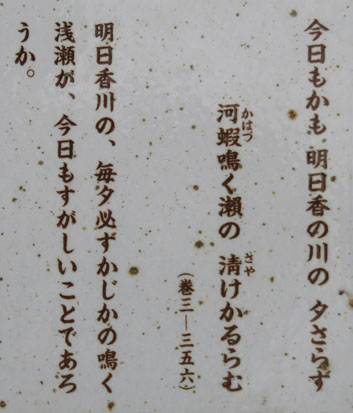 今日もかも 明日香の川の 夕さらず
河蝦鳴く瀬の 清けかるらむ
かはづ
さや
(巻三―三五六)
明日香川の、毎夕必ずかじかの鳴く
浅瀬が、今日もすがしいことであろ
うか。